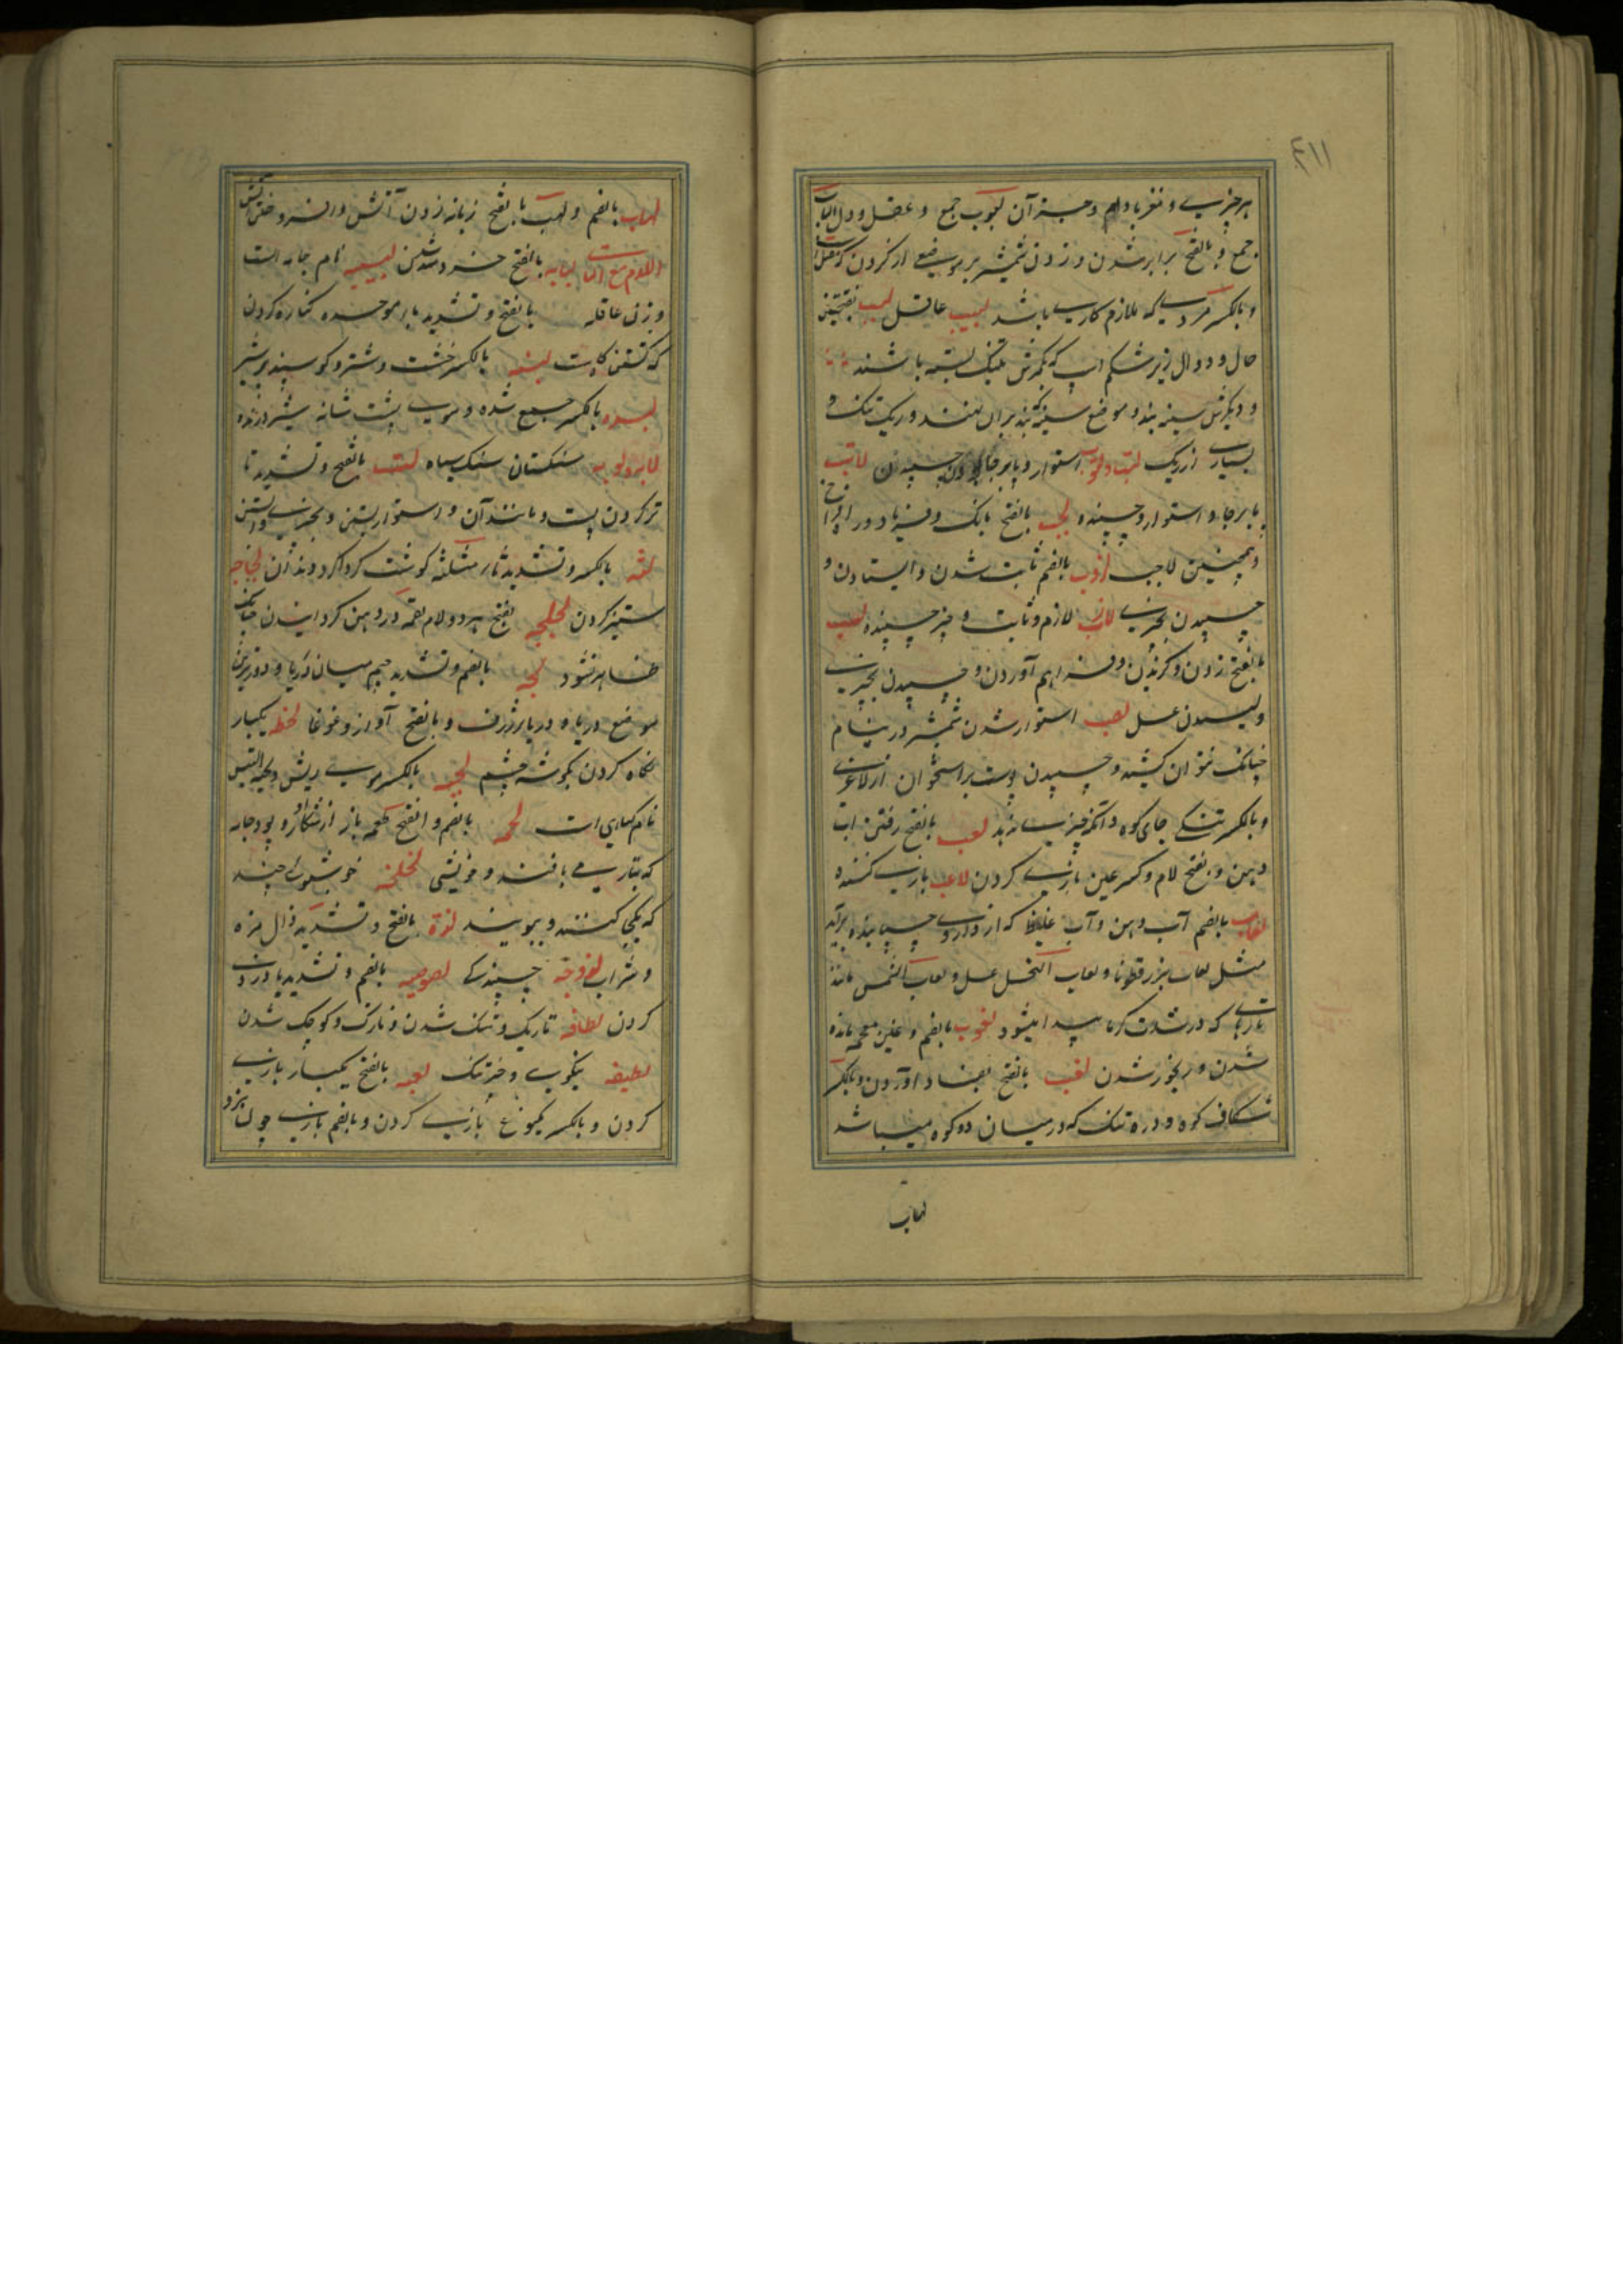 ۴۱۱
هر چیزی و مغز بادام و جز آن لبوب جمع و عقل و دل الباب
جمع و بالفتح برابر شدن و زدن شمشیر بر موضع از کردن
و بالکسر مردی که ملازم کاری باشد لبیب عاقل لبب بفتحتین
حال و دوال زیر شکم اسپ که یکسرش بتنک بسته باشند
و دیگرش سینه بند و موضع سینه که بند بران بندند و ریک تنک و
بسیاری از ریک لتب و لتوب استوار و پابرجا بودن و چسپیدن لاتب
پابرجا و استوار و چسپنده لجب بالفتح بانک و فریاد و
و همچنین لاجب لزوب بالضم ثابت شدن و ایستادن و
چسپیدن بچیزی لازب لازم و ثابت و چیز چسپنده لسب
بالفتح زدن و کزیدن و فراهم آوردن و چسپیدن بچیزی
و لیسیدن عسل لصب استوار شدن شمشیر در نیام
چنانکه نتوان کشید و چسپیدن پوست بر استخوان از لاغری
و بالکسر تنکی جای کوه و آنکه چیزی ندهد لعب بالفتح رفتن اب
دهن و بفتح لام و کسر عین بازی کردن لاعب بازی کننده
لعاب بالضم آب دهن و آب غلیظ که از داروی چسپانیده برآید
مثل لعاب بزرقطونا و لعاب النحل عسل و لعاب الشمس مانند
تارهای که در شدت کرما پیدا میشود لغوب بالضم و غین معجمه مانده
شدن و رنجور شدن لغب بالفتح بفساد آوردن و بالکسر
شکاف کوه و دره تنک که در میان دو کوه میباشد
لهاب
لهاب بالضم و لهب بالفتح زبانه زدن آتش و افروختن آتش
اللام مع التا لبابه بالفتح خردمند شدن لبیبه نام جامه است
و زن عاقله بالفتح و تشدید بای موحده کناره کردن
که کشتن کاهست لبنه بالکسر خشت و شتر و کوسپند پر شیر
لبده بالکسر جمع شده و موی پشت شانه شیر درنده
لابه و لوبه سنکستان سنک سیاه لتت بالفتح و تشدید تا
تر کردن پست و مانند آن و استوار بستن و بچیزی وابستن
لثه بالکسر و تشدید ثای مثلثه کوشت کرداکرد دندان لجاجه
ستیز کردن لجلجه بفتح هر دو لام لقمه در دهن کردانیدن چنانکه
ظاهر نشود لجه بالضم و تشدید جیم میان دریا و دورترین
موضع دریا و دریای ژرف و بالفتح آواز و غوغا لحظه یکبار
نکاه کردن بکوشه چشم لحیه بالکسر موی ریش و لحیة التیس
نام کیاهی است لحمه بالضم و الفتح طعمه باز از شکار او و پود جامه
که بتار می بافند و خویشی لخلخه خوشبوی چند
که یکجا کنند و ببویند لذة بالفتح و تشدید ذال مزه
و شراب لزوجة چسپندکی لصوصیه بالضم و تشدید یا دزدی
کردن لطافه تاریک و تنک شدن و نازک و کوچک شدن
لطیفه نیکوی و چیز تنک لعبه بالفتح یکبار بازی
کردن و بالکسر یکنوع بازی کردن و بالضم بازی چون نرد